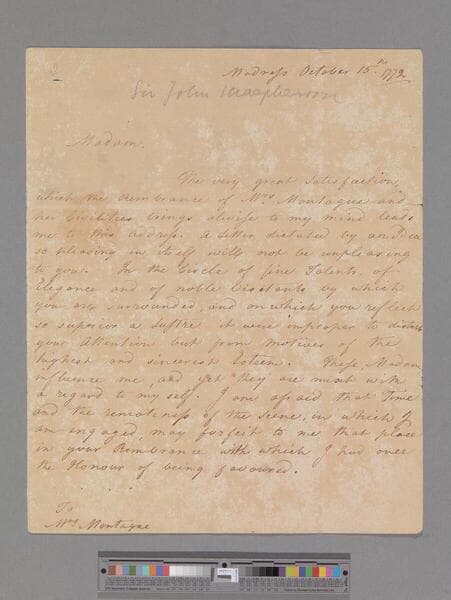 Madrass October 15.th 1772
Sir John Macpherson
Madam.
The very great Satisfaction,
which the Rembrance of Mrs Montague and
her Civilities brings always to my mind leads
me to this address. A Letter dictated by an Idea
so pleasing in itself will not be unpleasing
to you. In the Circle of fine Talents, of
Elegance and of noble Visitants by which
you are surrounded, and on which you reflect
so superior a Lustre it were improper to disturb
your Attention but from motives of the
highest and sincerest Esteem. These, Madam,
influence me, and yet they are mixt with
a regard to my self. I am afraid that Time
and the remoteness of the Scene, in which I
am engaged, may forfeit to me that place
in your Rembrance with which I had once
the Honour of being favoured.
To
Mrs Montague